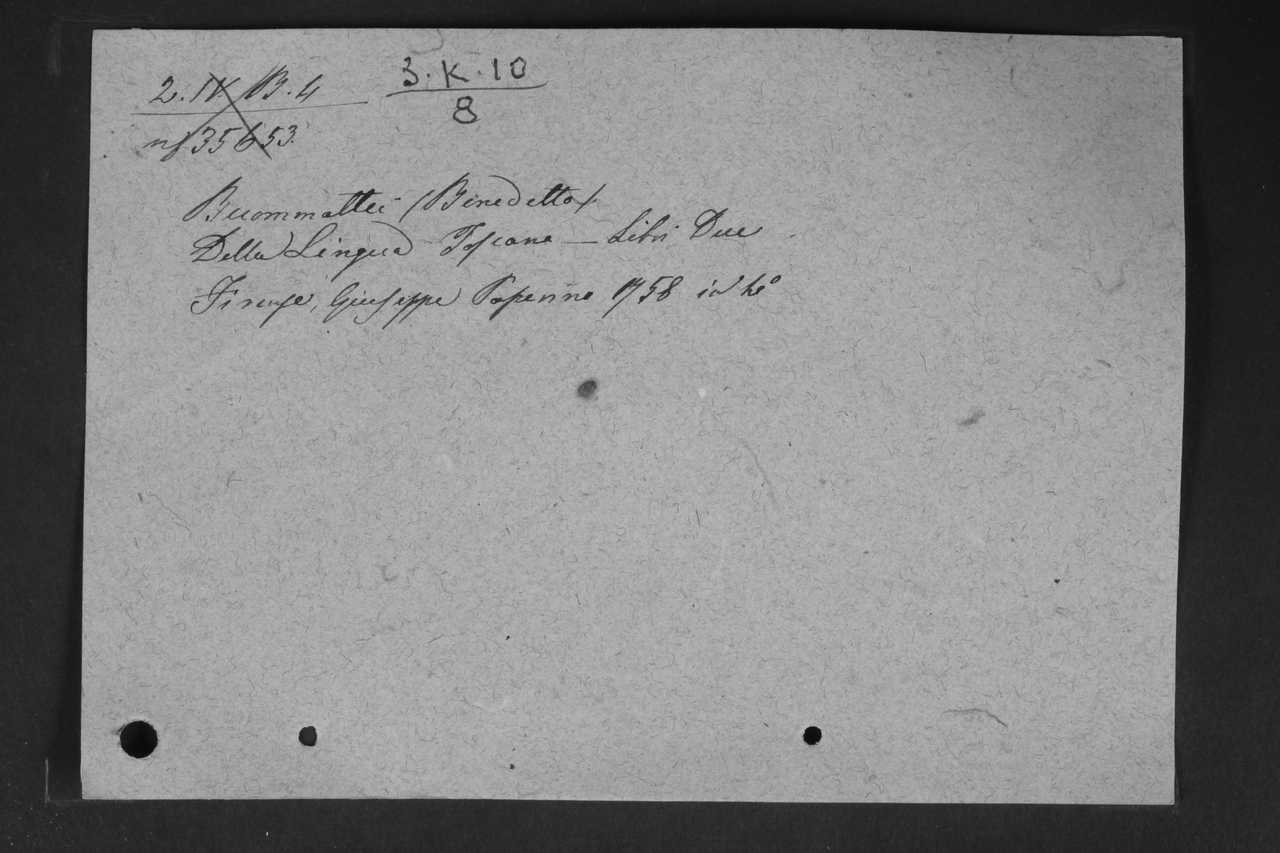 2.IV. B.4
3.K.10
8
nf 35653.
Buommattei (Benedetto)
Della Lingua Toscana — Libri Due
Firenze, Giuseppe 1758 in 4º